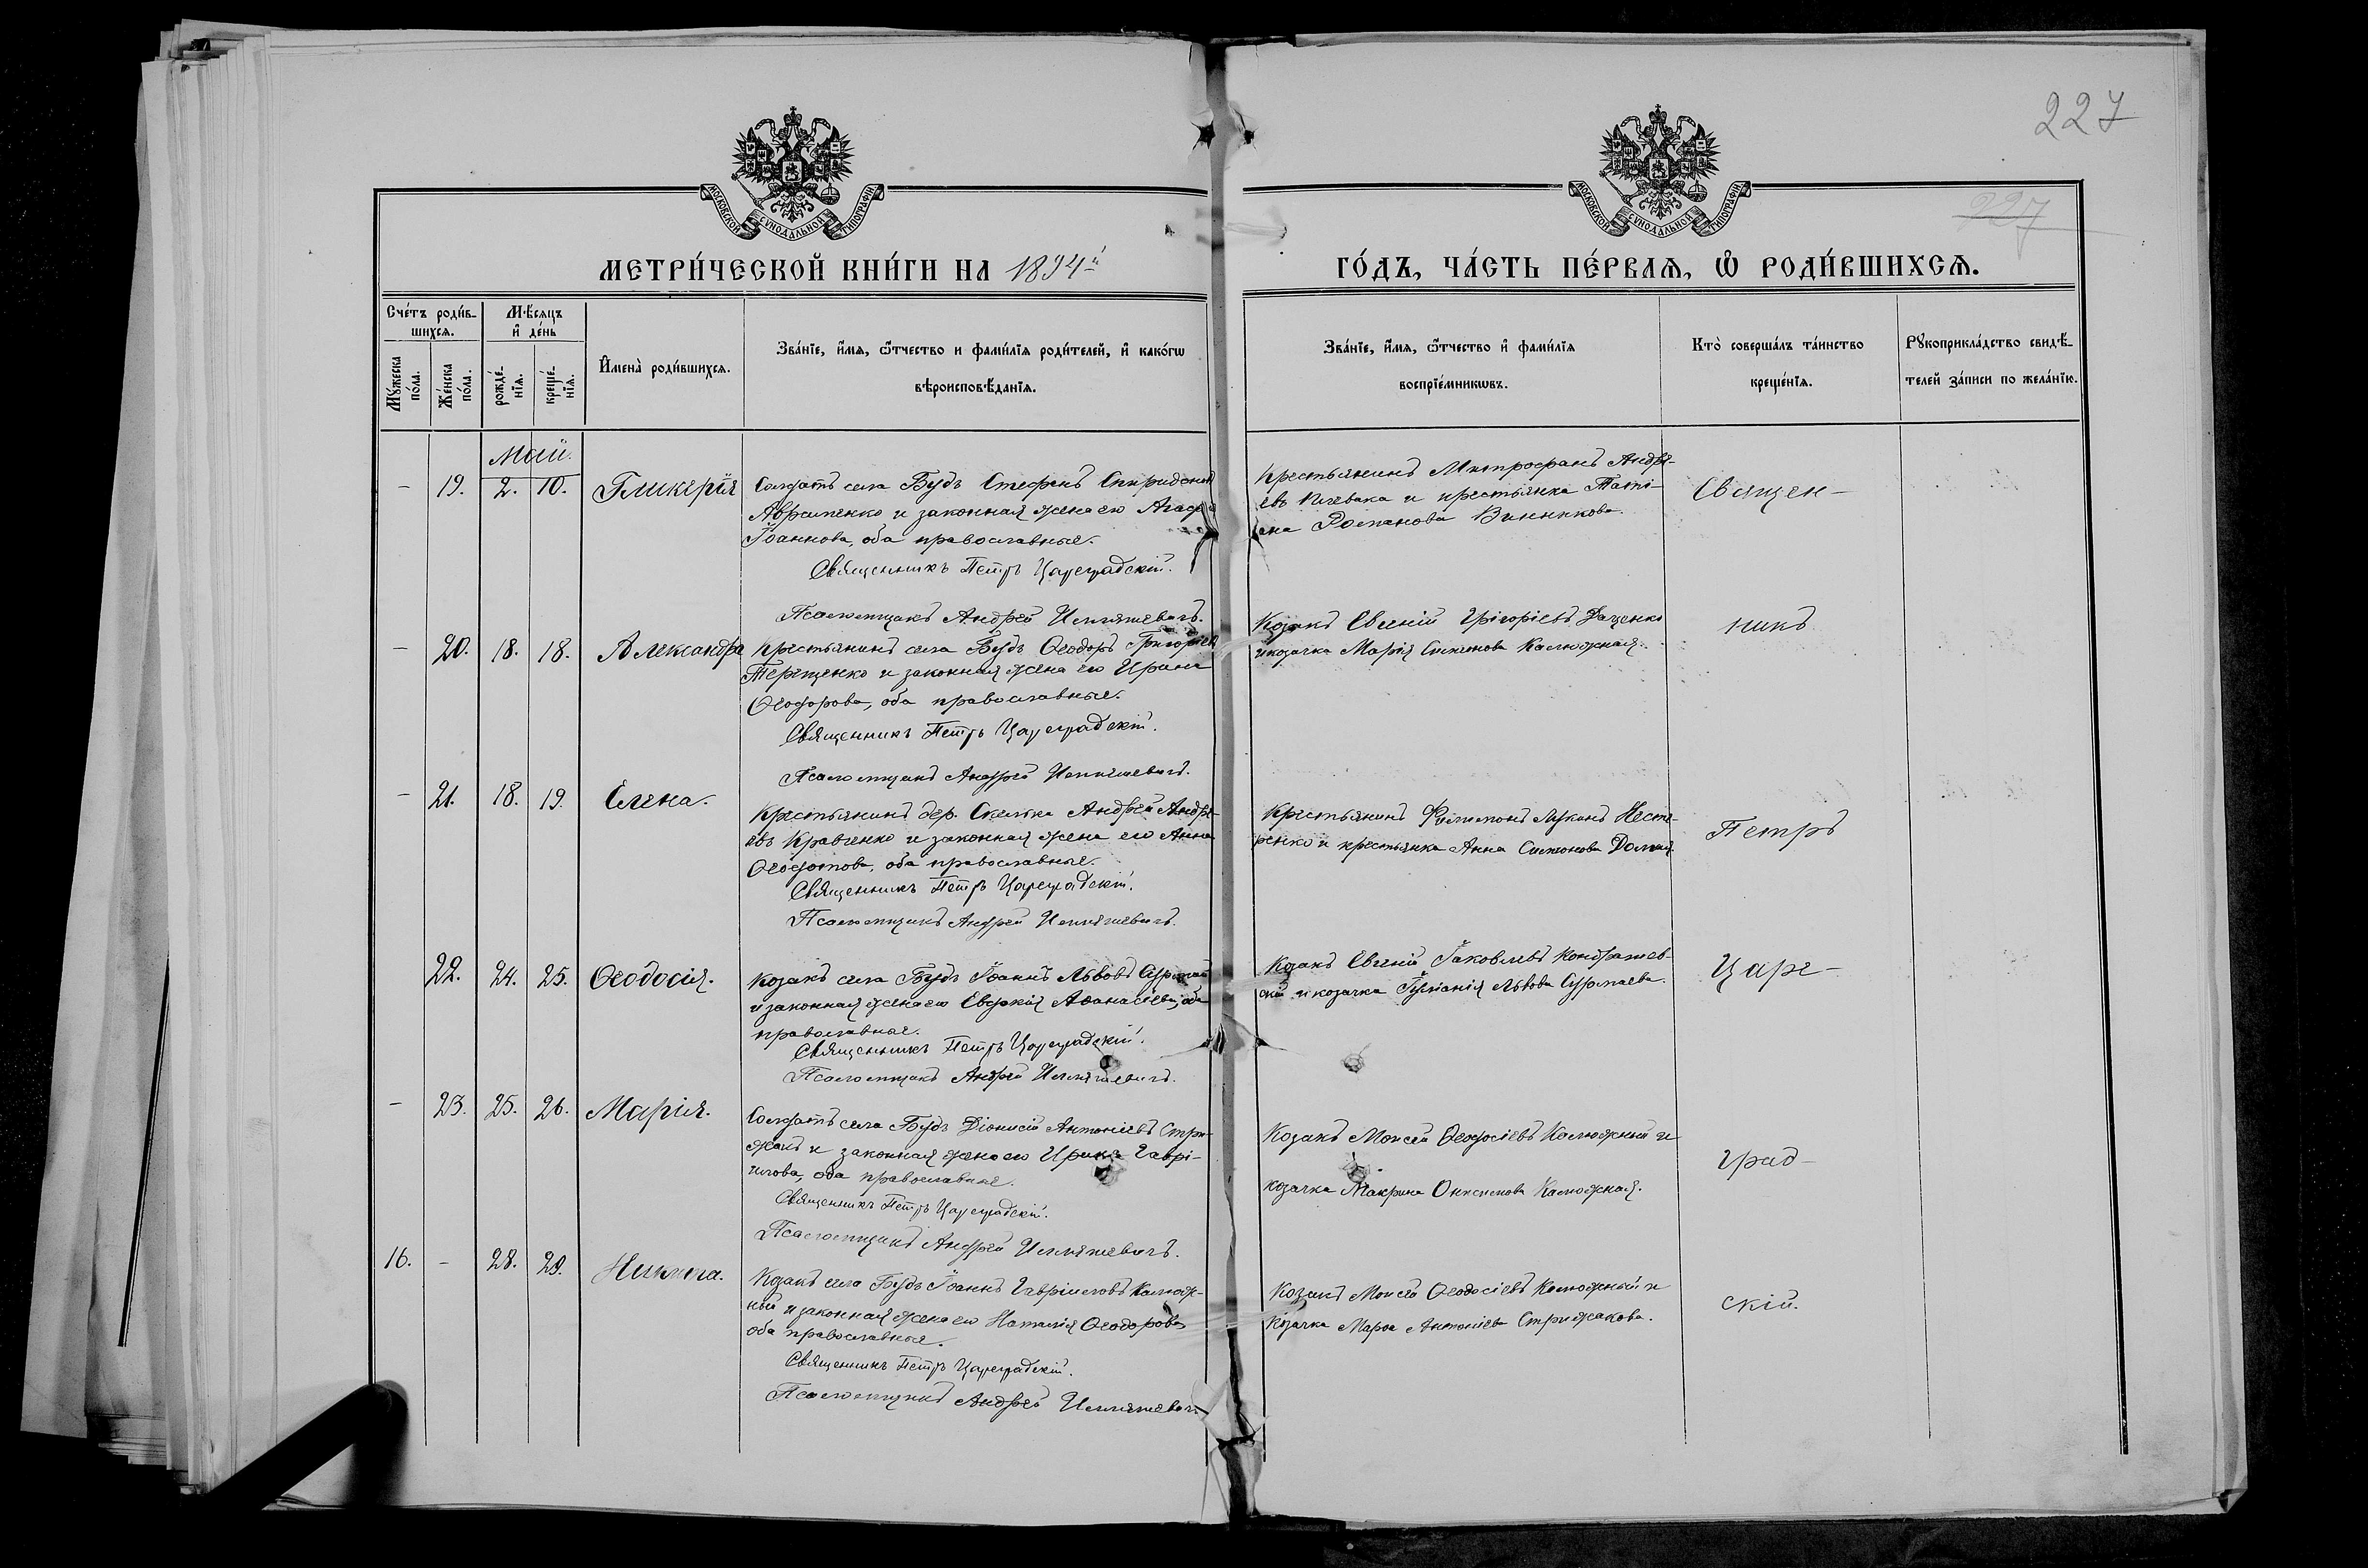 227
227
МОСКОВСКОЙ СѴНОДАЛЬНОЙ ТИПОГРАФІИ
МОСКОВСКОЙ СѴНОДАЛЬНОЙ ТИПОГРАФІИ
МЕТРИ́ЧЕСКОЙ КНИ́ГИ НА 1894й
ГО́ДЪ, ЧА́СТЬ ПЕ́РВАѦ, Ѡ҆ РОДИ́ВШИХСѦ.
Сче́тъ роди́в-
шихсѧ.
Мꙋ́жеска по́ла.
Же́нска по́ла.
Мѣ́сѧцъ
и҆ де́нь
рожде́-
нїѧ.
креще́-
нїѧ.
И҆мена̀ роди́вшихсѧ.
Зва́нїе, и҆́мѧ, ѻ҆́тчество и фами́лїѧ роди́телей, и҆ како́гѡ
вѣроисповѣ́данїѧ.
Зва́нїе, и҆́мѧ, ѻ҆́тчество и҆ фами́лїѧ
воспрїе́мникѡвъ.
Кто̀ соверша́лъ та́инство
креще́нїѧ.
Рꙋкоприкла́дство свидѣ́-
телей за́писи по жела́нїю.
Май.
– 19. 2. 10. Гликерія
Солдатъ села Будъ Стефанъ Спиридонов
Авраменко и законная жена его Агаф
Іоаннова, оба православные.
Священникъ Петръ Цареградскій.
Псаломщикъ Андрей
Крестьянинъ Митрофанъ Андре-
евъ и крестьянка Тати-
ана Романова Винникова.
Священ-
– 20. 18. 18. Александра
Крестьянинъ села Будъ Ѳеодоръ Григоріев
Терещенко и законная жена его Ирина
Ѳеодорова, оба православные.
Священникъ Петръ Цареградскій.
Псаломщикъ Андрей
Козакъ Евгеній Григоріевъ Даценко
и козачка Марія Симеонова Калюжная.
никъ
– 21. 18. 19. Елена.
Крестьянинъ дер. Андрей Андре-
евъ Кравченко и законная жена его Анна
оба православные.
Священникъ Петръ Цареградскій.
Псаломщикъ Андрей
Крестьянинъ Филимонъ Несте-
ренко и крестьянка Анна Симеонова
Петръ
22. 24. 25. Ѳеодосія.
Козакъ села Будъ Іоаннъ Львовъ
и законная жена его Евдокія Аѳанасіева, оба
православные.
Священникъ Петръ Цареградскій.
Псаломщикъ Андрей
Козакъ Евгеній Іаковлевъ Кондрашев-
скій и козачка Іуліанія Львова
Царе-
– 23. 25. 26. Марія.
Солдатъ села Будъ Діонисій Антоніевъ Стри-
жакъ и законная жена его Ирина Гаврі-
илова, оба православные.
Священникъ Петръ Цареградскій.
Псаломщикъ Андрей
Козакъ Моисей Ѳеодосіевъ Калюжный и
козачка Макрина Онисимова Калюжная.
град-
16. – 28. 29. Никита.
Козакъ села Будъ Іоаннъ Гавріиловъ Калюж-
ный и законная жена его Наталія Ѳеодорова
оба православные.
Священникъ Петръ Цареградскій.
Псаломщикъ Андрей
Козакъ Моисей Ѳеодосіевъ Калюжный и
козачка Марѳа Антоніева Стрижакова.
скій.